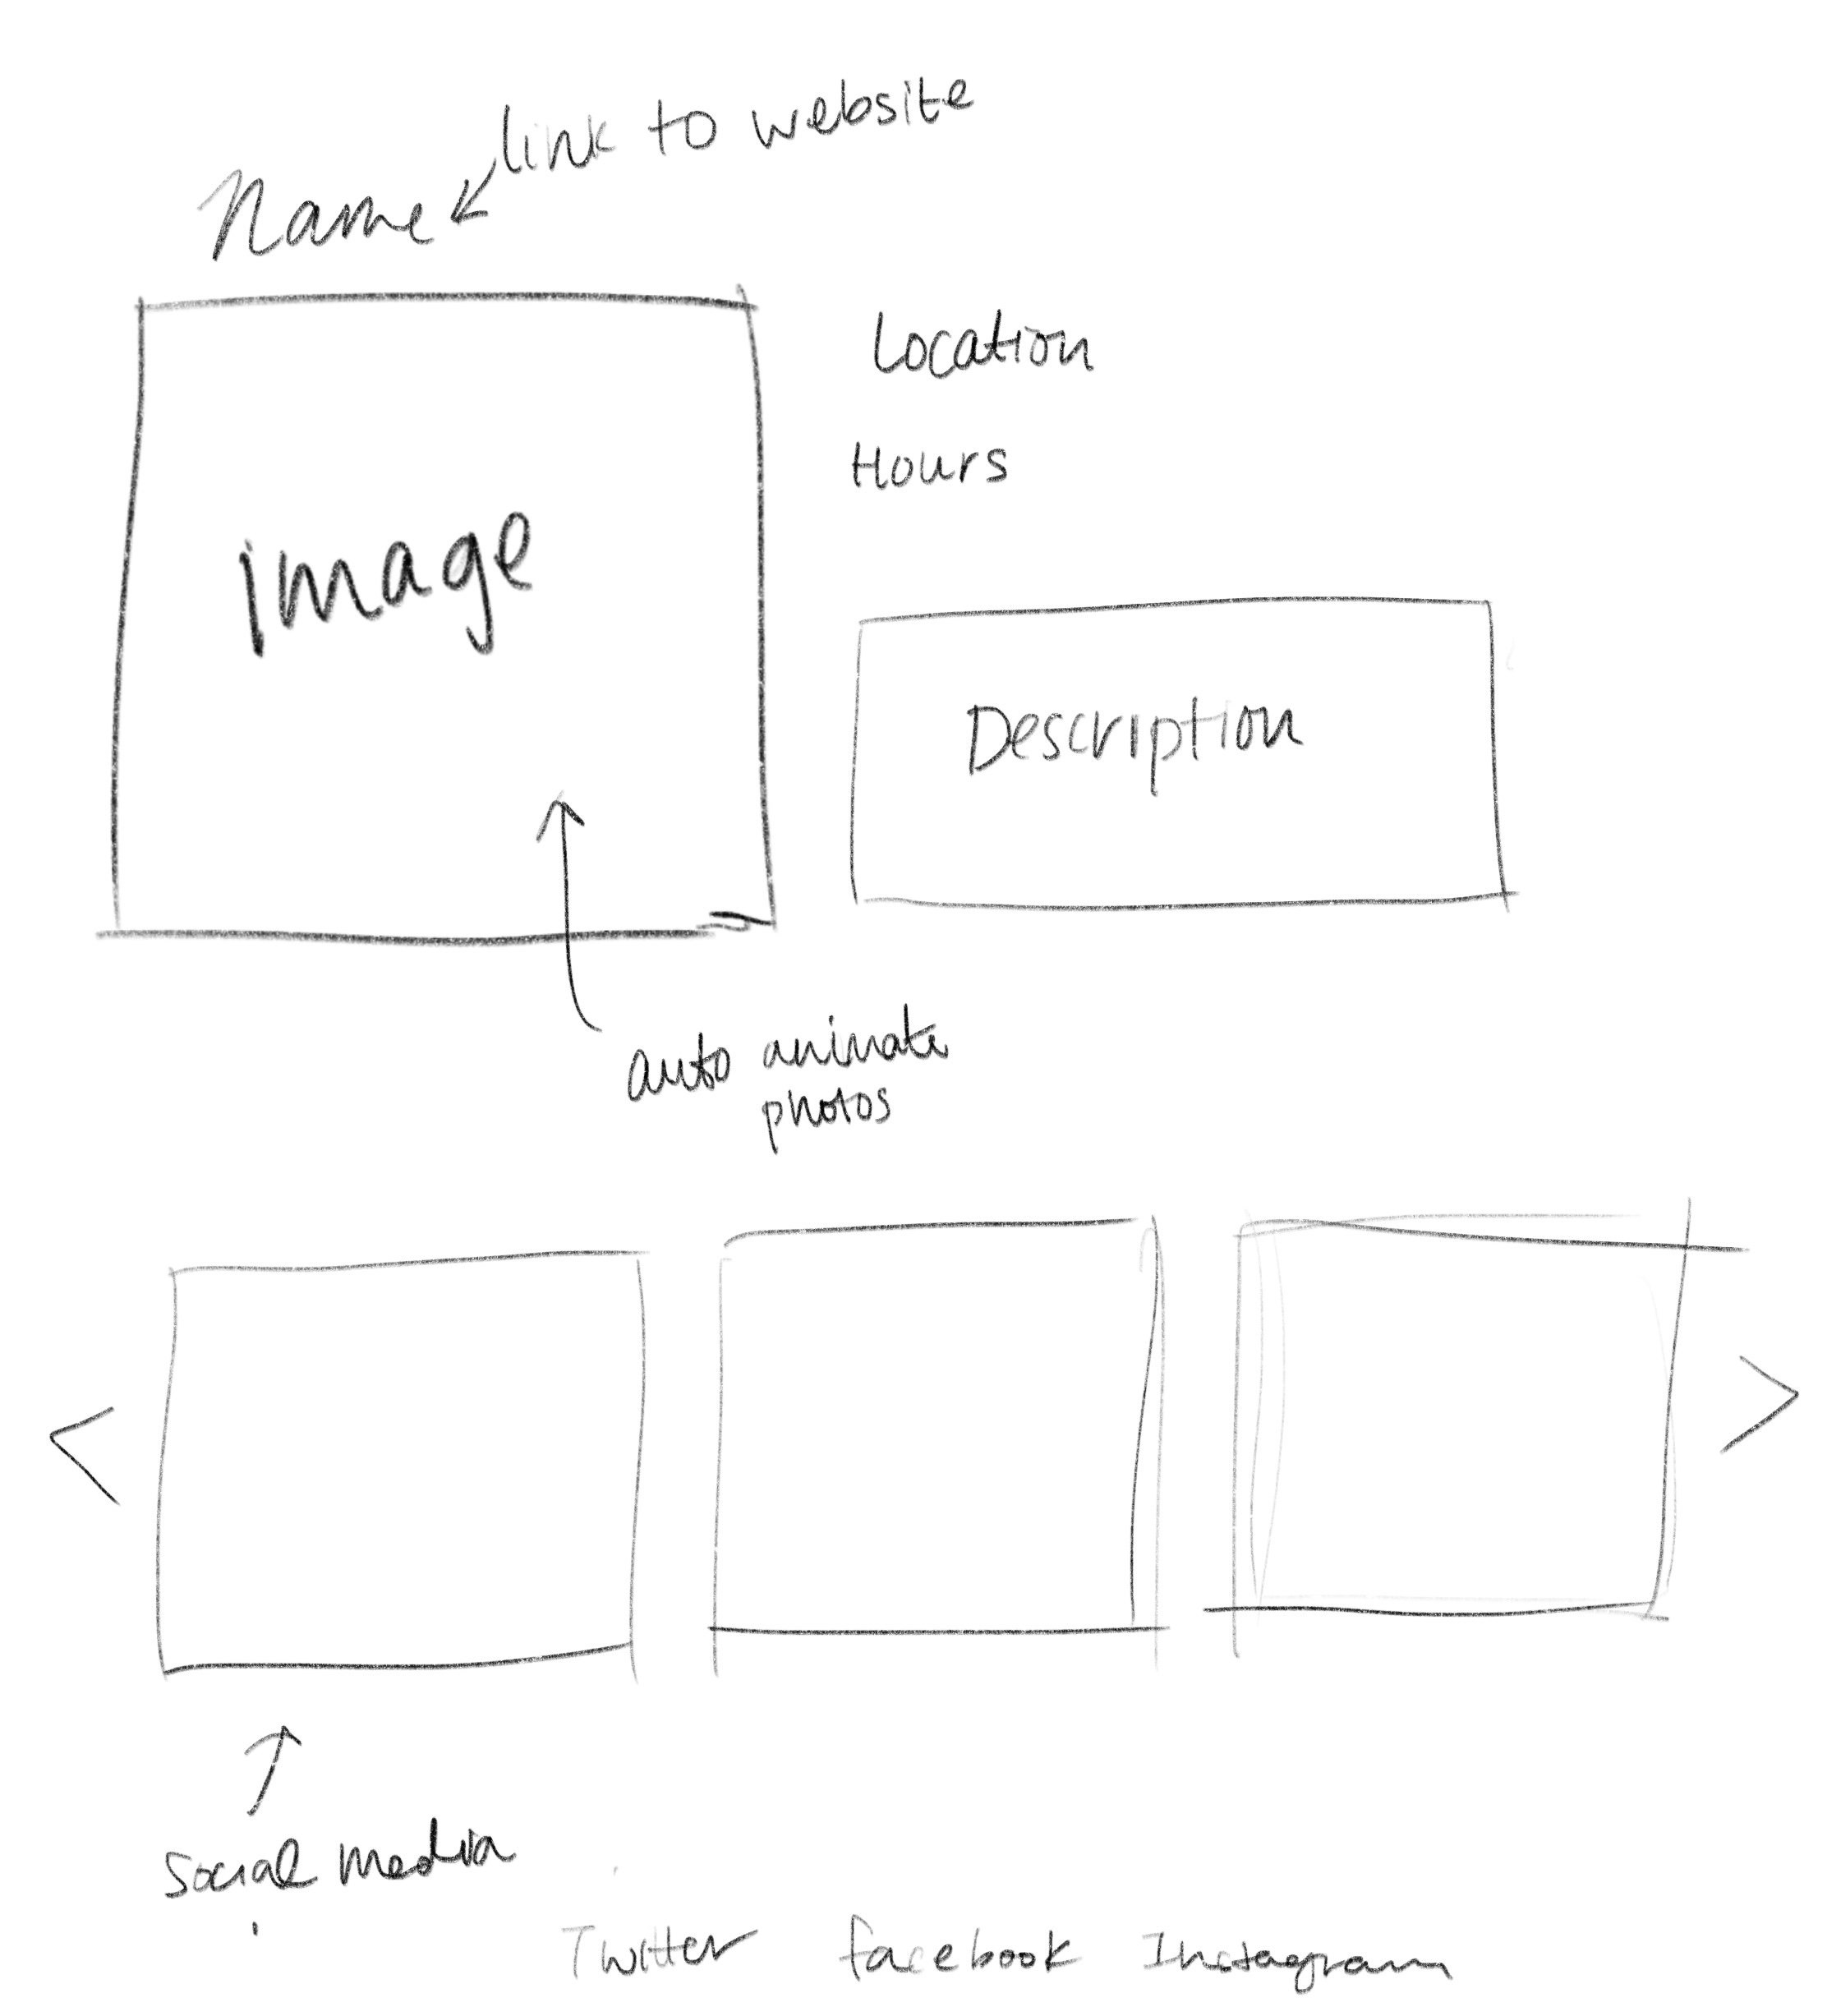 link to website
Name
Location
Hours
image
Description
auto animate
photos
<
>
social media
Twitter facebook Instagram